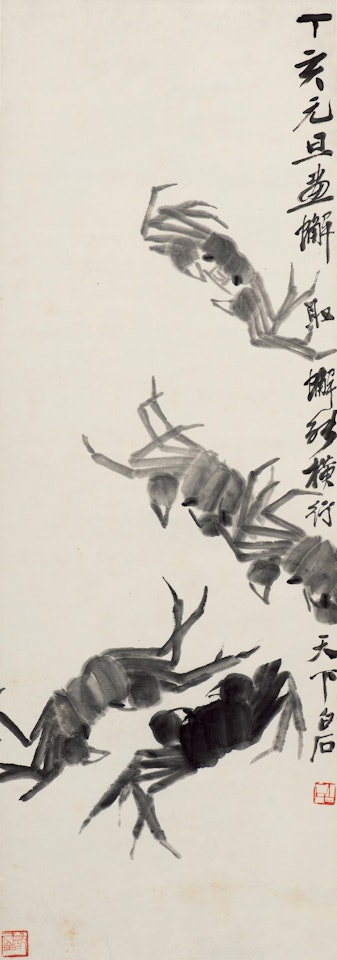 丁亥元旦画蠏 取蠏能横行天下白石